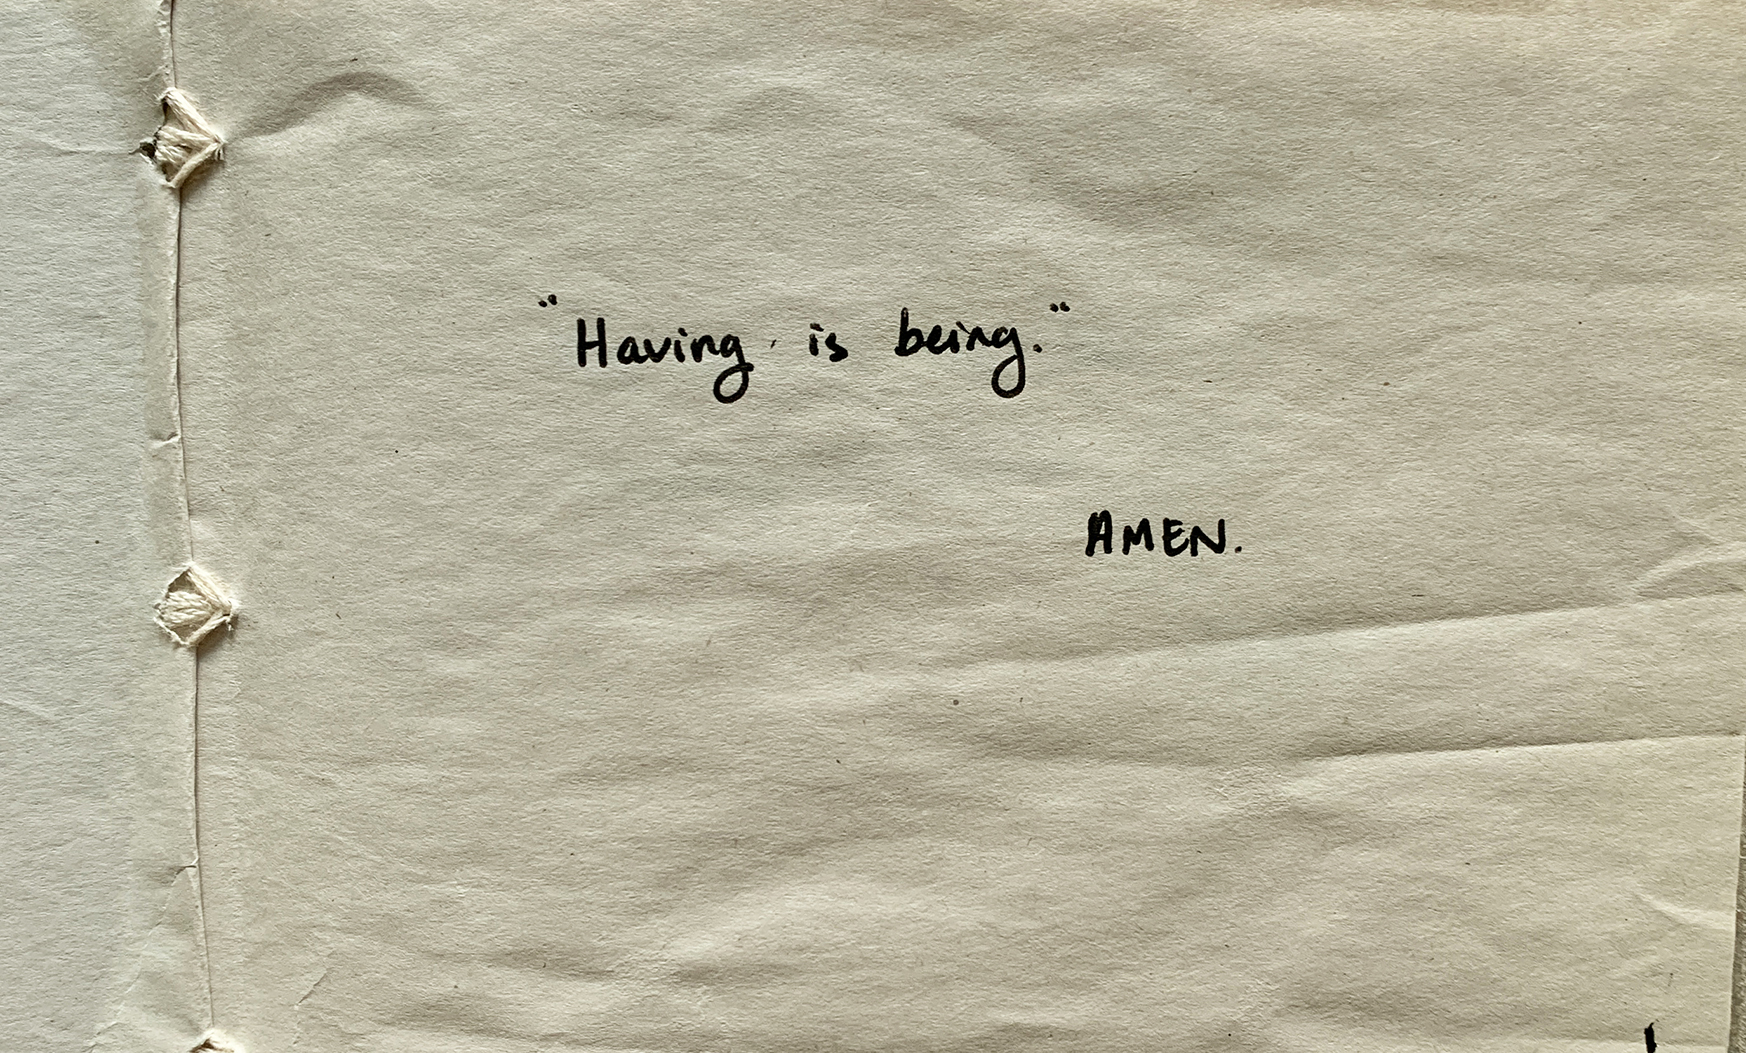 "Having is being."
AMEN.